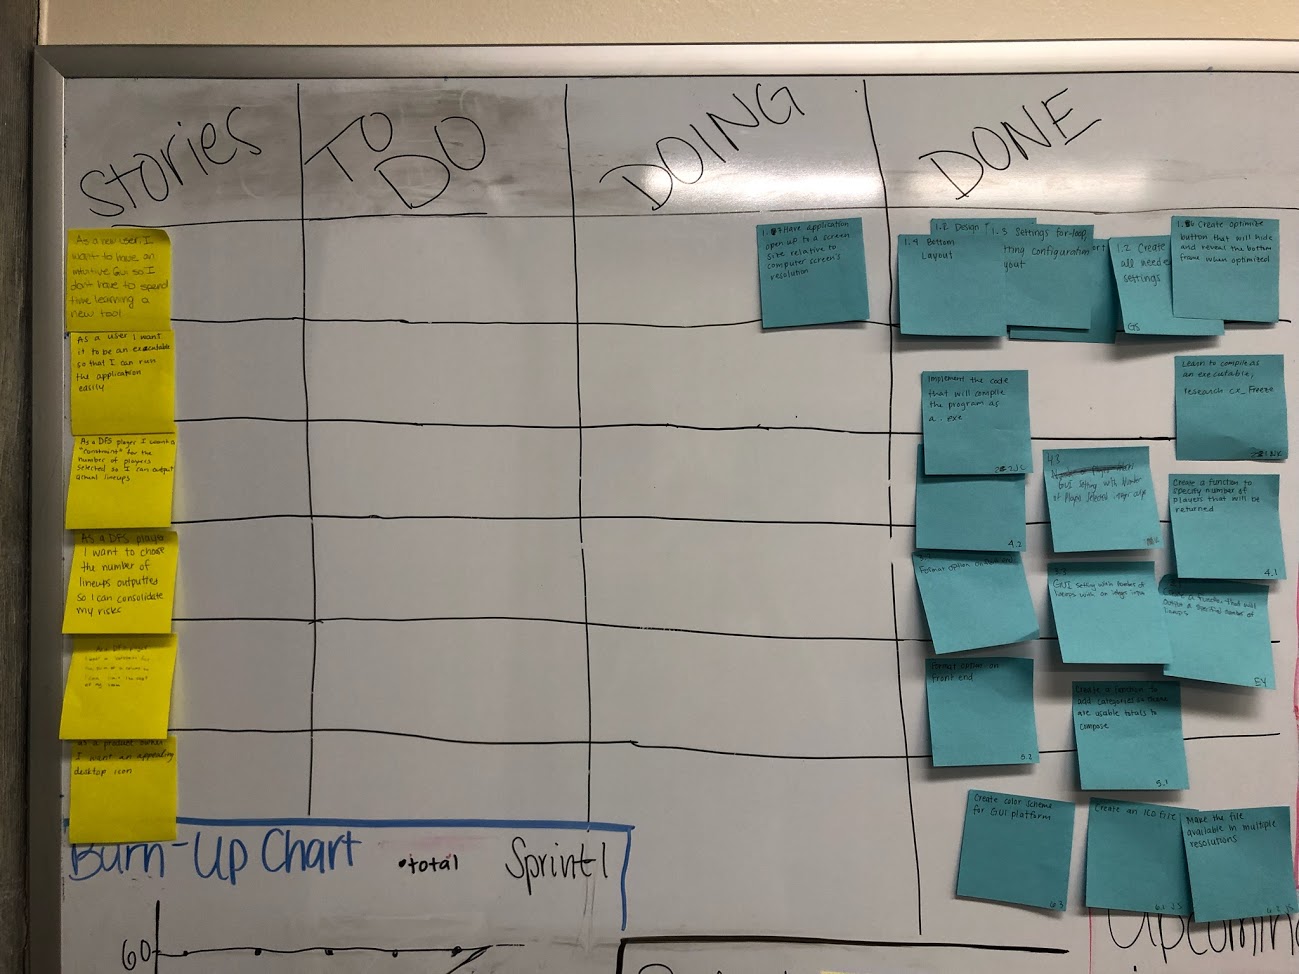 Stories
TO
DO
DOING
DONE
As a new user, I
want to have an
intuitive GUI so I
don't have to spend
time learning a
new tool
As a user I want
it to be an executable
so that I can run
the application
easily
As a DFS player I want a
"constraint" for the
number of players
selected so I can output
actual lineups
As a DFS player
I want to choose
the number of
lineups outputted
so I can consolidate
my risks
as a product owner
I want an appealing
desktop icon
Have application
open up to a screen
size relative to
computer screen's
resolution
1.2 Design
1.4 Bottom
Layout
1.3 Settings for-loop,
Configuration
yout
1.2 Create
all neede
settings
GS
Create optimize
button that will hide
and reveal the bottom
frame when optimized
Implement the code
that will compile
the program as
a .exe
Learn to compile as
an executable,
research cx_Freeze
4.2
4.3
GUI setting with Number
of Players Selected
Create a function to
specify number of
players that will be
returned
4.1
Format option on
GUI setting with Number of
lineups with an integer
Create a function that will
number of
lineups
EY
Format option on
front end
5.2
Create a function to
add categories
are usable totals to
compose
5.1
Create color scheme
for GUI platform
6.3
Create an ICO file
6.1 JS
Make the file
available in multiple
resolutions
Burn-Up Chart
•total
Sprint 1
60
Upcoming